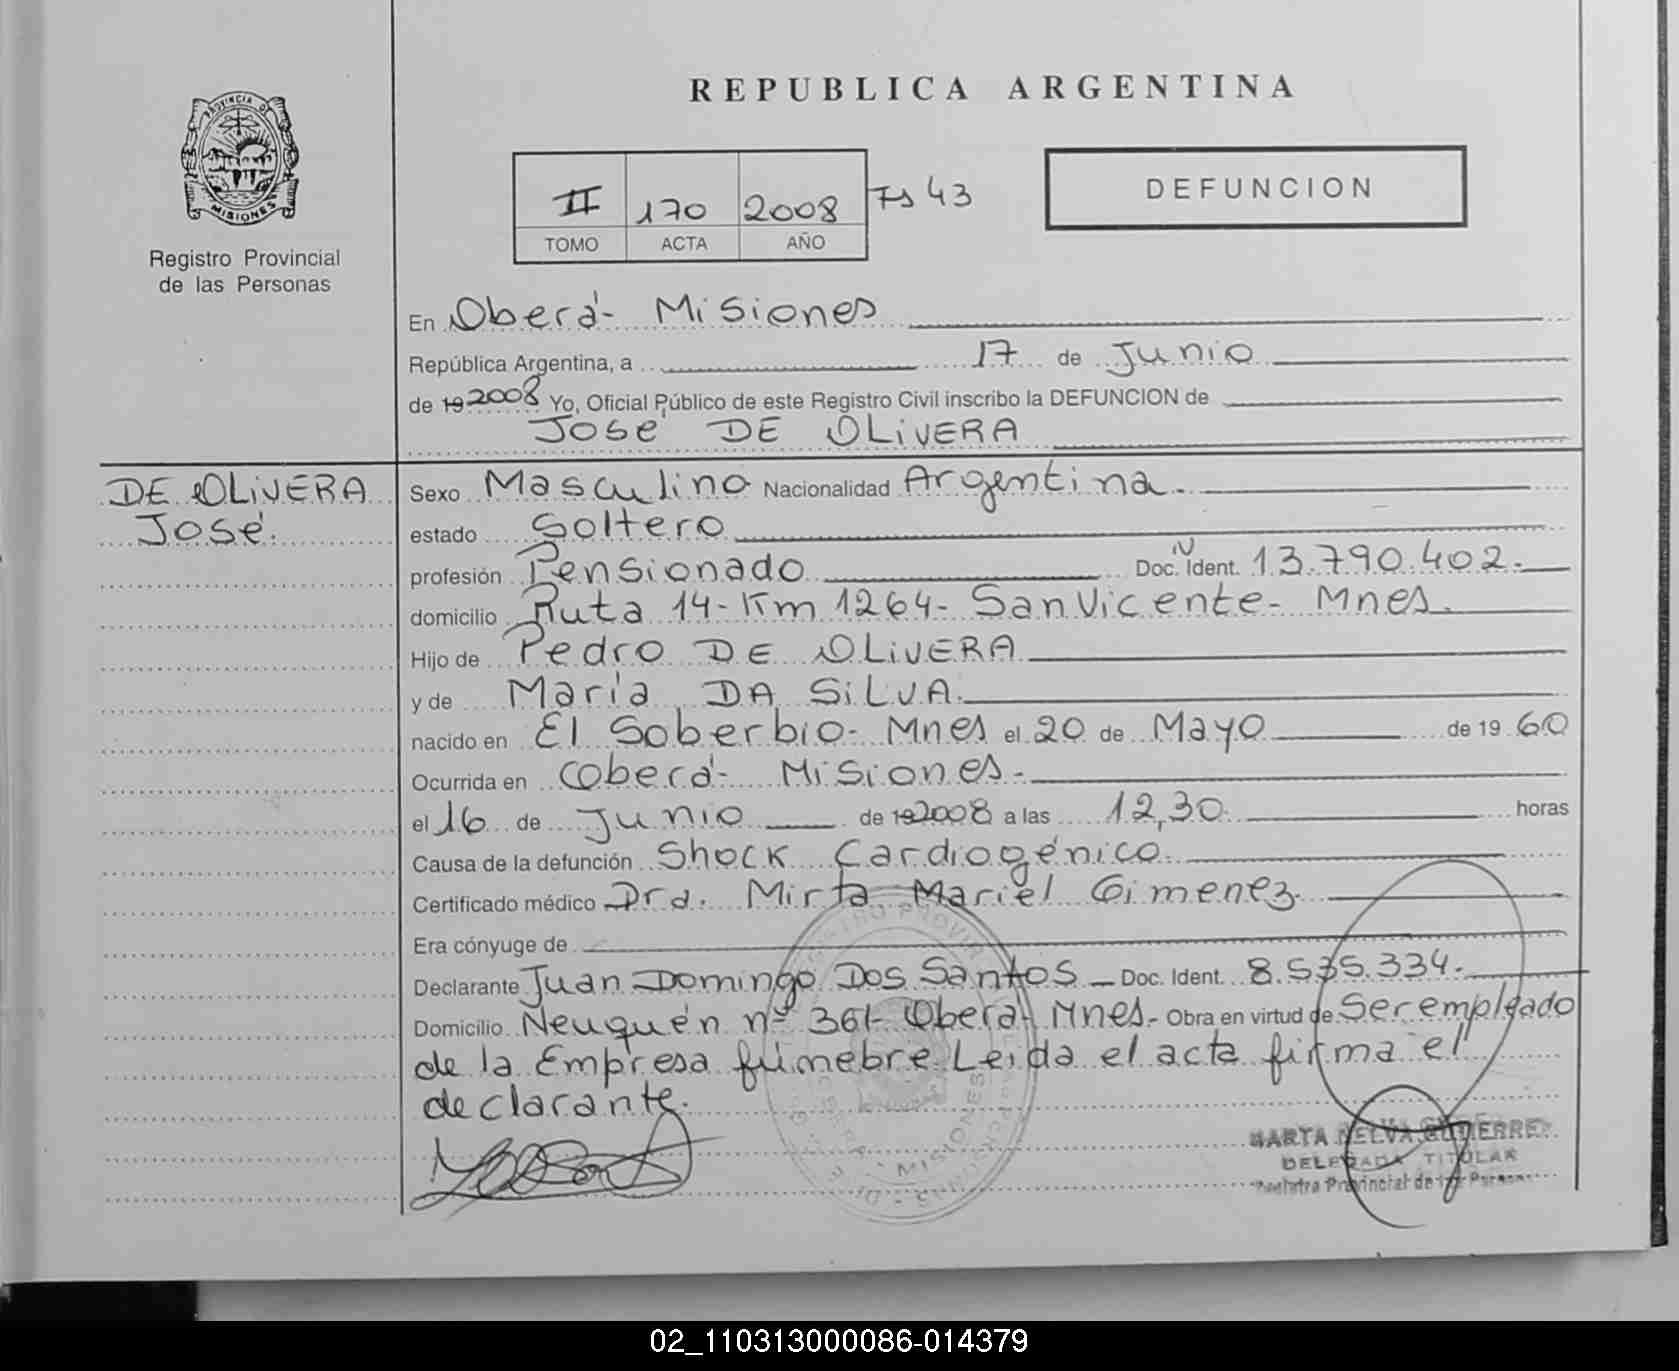 PROVINCIA DE
MISIONES
Registro Provincial
de las Personas
REPUBLICA ARGENTINA
II 170 2008 Fs 43
TOMO ACTA AÑO
DEFUNCION
En Oberá- Misiones
República Argentina, a 17 de Junio
de 19 2008 Yo, Oficial Público de este Registro Civil inscribo la DEFUNCION de
José DE OLIVERA
DE OLIVERA
José.
Sexo Masculino Nacionalidad Argentina.
estado Soltero
profesión Pensionado Doc. N Ident. 13.790.402.-
domicilio Ruta 14- Km 1264- San Vicente- Mnes.
Hijo de Pedro DE OLIVERA
y de María DA SILVA.
nacido en El Soberbio- Mnes el 20 de Mayo de 19 60
Ocurrida en Oberá- Misiones.-
el 16 de Junio de 19 2008 a las 12,30 horas
Causa de la defunción Shock Cardiogénico.
Certificado médico Dra. Mirta Mariel Gimenez.
Era cónyuge de
Declarante Juan Domingo Dos Santos - Doc. Ident. 8.535.334.-
Domicilio Neuquén nº 361- Oberá- Mnes.- Obra en virtud de Ser empleado
de la Empresa fúnebre Leida el acta firma el
declarante.
MARTA NELVA GUTIERREZ
DELEGADA TITULAR
Registro Provincial de las Personas
MISIONES
02_110313000086-014379